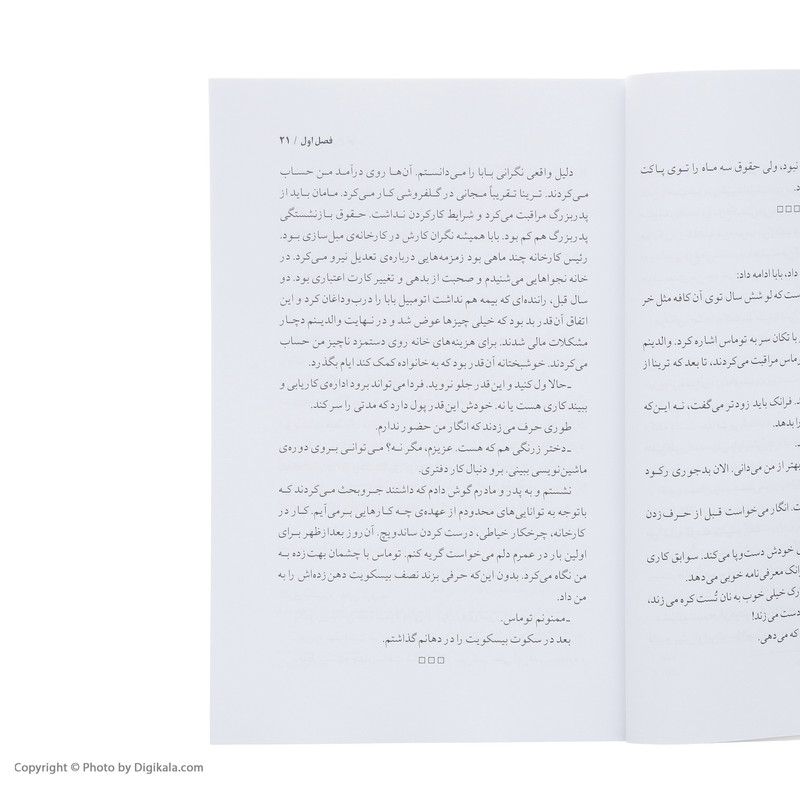 نبود، ولی حقوق سه ماه را توی پاکت
د.
□□□
داد، بابا ادامه داد:
ست که لو شش سال توی آن کافه مثل خر
با تکان سر به توماس اشاره کرد. والدینم
وماس مراقبت می‌کردند، تا بعد که ترینا از
د. فرانک باید زودتر می‌گفت، نه این‌که
را بدهد.
بهتر از من می‌دانی. الان بدجوری رکود
ت. انگار می‌خواست قبل از حرف زدن
ی خودش دست‌وپا می‌کند. سوابق کاری
رانک معرفی‌نامه خوبی می‌دهد.
ارک خیلی خوب به نان تُست کره می‌زند،
دست می‌زند!
که می‌دهی.
فصل اول / ۲۱
دلیل واقعی نگرانی بابا را می‌دانستم. آن‌ها روی درآمد من حساب
می‌کردند. ترینا تقریباً مجانی در گلفروشی کار می‌کرد. مامان باید از
پدربزرگ مراقبت می‌کرد و شرایط کارکردن نداشت. حقوق بازنشستگی
پدربزرگ هم کم بود. بابا همیشه نگران کارش در کارخانه‌ی مبل‌سازی بود.
رئیس کارخانه چند ماهی بود زمزمه‌هایی درباره‌ی تعدیل نیرو می‌کرد. در
خانه نجواهایی می‌شنیدم و صحبت از بدهی و تغییر کارت اعتباری بود. دو
سال قبل، راننده‌ای که بیمه هم نداشت اتومبیل بابا را درب‌وداغان کرد و این
اتفاق آن‌قدر بد بود که خیلی چیزها عوض شد و در نهایت والدینم دچار
مشکلات مالی شدند. برای هزینه‌های خانه روی دستمزد ناچیز من حساب
می‌کردند. خوشبختانه آن‌قدر بود که به خانواده کمک کند ایام بگذرد.
ـ حالا ول کنید و این قدر جلو نروید. فردا می‌تواند برود اداره‌ی کاریابی و
ببیند کاری هست یا نه. خودش این قدر پول دارد که مدتی را سر کند.
طوری حرف می‌زدند که انگار من حضور ندارم.
ـ دختر زرنگی هم که هست. عزیزم، مگر نه؟ می‌توانی بروی دوره‌ی
ماشین‌نویسی ببینی. برو دنبال کار دفتری.
نشستم و به پدر و مادرم گوش دادم که داشتند جروبحث می‌کردند که
باتوجه به توانایی‌های محدودم از عهده‌ی چه کارهایی برمی‌آیم. کار در
کارخانه، چرخکار خیاطی، درست کردن ساندویچ. آن‌روز بعدازظهر برای
اولین بار در عمرم دلم می‌خواست گریه کنم. توماس با چشمان بهت‌زده به
من نگاه می‌کرد. بدون این‌که حرفی بزند نصف بیسکویت دهن زده‌اش را به
من داد.
ـ ممنونم توماس.
بعد در سکوت بیسکویت را در دهانم گذاشتم.
□□□
Copyright © Photo by Digikala.com